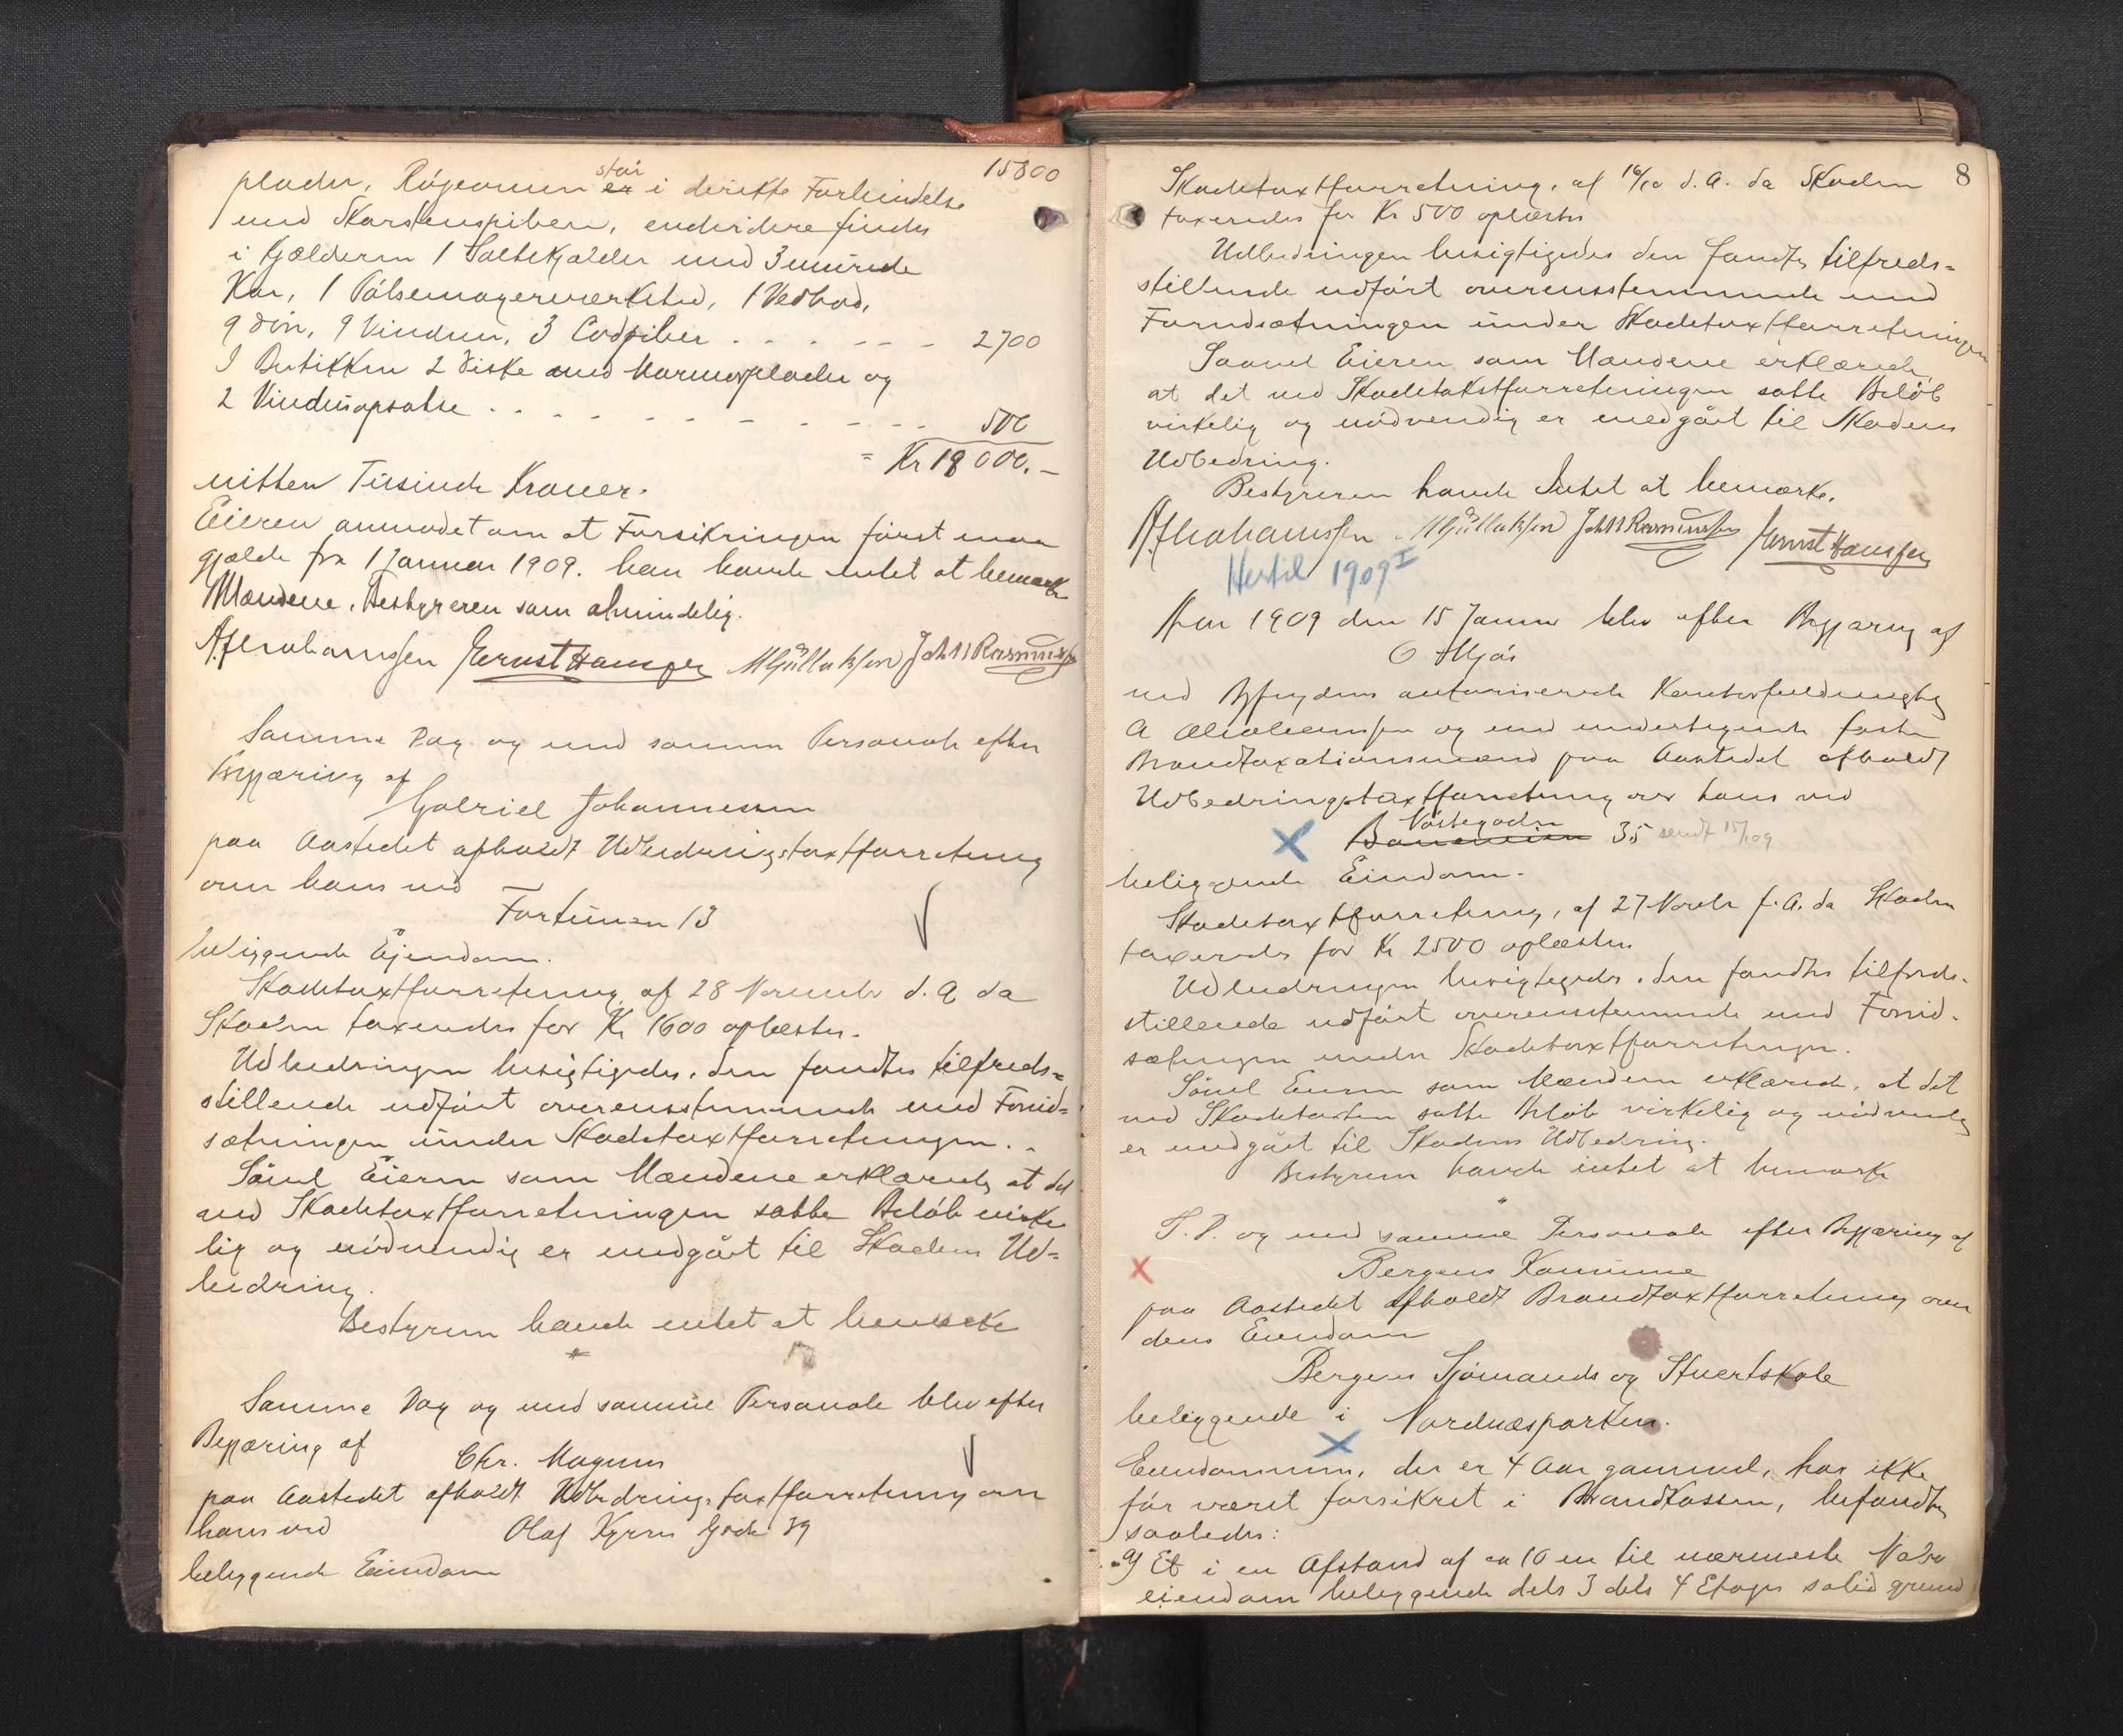 15800
plader, Rögeovnen er stär i direkte Forbindelse
med Skorstenspiben, endvidere findes
i Kjælderen 1 Saltekjælder med 3 murede
Kar, 1 Pölsemagerværksted, 1 Vedbod,
9 Dör, 9 Vinduer, 3 Lodpiber . . . . . . . 2700
I Butikken 2 Diske med Marmorplader og
2 Vinduopsatse . . . . . . . . . 500
= Kr 19 000.—
nitten Tusinde Kroner.
Eieren anmodet om at Forsikringen först maa
gjælde fra 1 Januar 1909. han havde intet at bemærke
Mændene, Bestyreren som almindelig.
A Abrahamssen Ernst Hansen M Gullaksen Joh N Rasmussen
Samme Dag og med samme Personale efter
Begjæring af
Gabriel Johannessen
paa Aastedet afholdt Udbedringstaxtforretning
over hans ved
Fortunen 13
beliggende Ejendom.
Skadetaxtforretning af 28 Novembr d. A da
Skaden taxeredes for Kr 1600 oplæstes.
Udbedringen besigtigedes, den fandtes tilfreds=
stillende udfört overensstemmende med Forud=
sætningen under Skadetaxtforretningen.
Såvel Eieren som Mændene erklærede, at det
ved Skadetaxtforretningen satte Belöb virke
lig og nödvendig er medgået til Skadens Ud=
bedring.
Bestyreren havde intet at bemærke
Samme Dag og med samme Personale blev efter
Begjæring af
Chr. Magnus
paa Aastedet afholdt Udbedringstaxtforretning over
hans ved Olaf Kyrres Gade 39
beliggende Eiendom
8
Skadetaxtforretning, af 16/10 d. A. da Skaden
taxeredes for Kr 500 oplæstes
Udbedringen besigtigedes den fandtes tilfreds=
stillende udfört overensstemmende med
Forudsætningen under Skadetaxtforretningen
Saavel Eieren som Mændene erklærede,
at det ved Skadetakstforretningen satte Belöb
virkelig og nödvendig er medgået til Skadens
Udbedring.
Bestyreren havde Intet at bemærke.
A Abrahamssen M Gullaksen Joh N Rasmussen Ernst Hansen
Hertil 1909 I
Aar 1909 den 15 Januar blev efter Begjæring af
O Mjös
ved Byfogdens autoriserede Kontorfuldmægtig
A Abrahamssen og med undertegnede faste
Brandtaxationsmænd paa Aastedet afholdt
Udbedringstaxtforretning over hans ved
Nöstegaden 35 sendt 15/1 09
beliggende Eiendom.
Skadetaxtforretning, af 27 Novbr f. A. da Skaden
taxeredes for Kr 2500 oplæstes
Udbedringen besigtigedes, den fandtes tilfreds-
stillende udfört overensstemmende med Forud-
sætningen under Skadetaxtforretningen.
Såvel Eieren som Mændene erklærede, at det
ved Skadetaxten satte Belöb virkelig og nödvendig
er medgået til Skadens Udbedring.
Bestyreren havde intet at bemærke
S. D. og med samme Personale efter Begjæring af
Bergens Kommune
paa Aastedet afholdt Brandtaxtforretning over
dens Eiendom
Bergens Sjömands og Stuertskole
beliggende i Nordnæsparken.
Eiendommen, der er 4 Aar gammel, har ikke
för været forsikret i Brandkassen, befandtes
saaledes:
a) Et i en Afstand af ca 10 m til nærmeste Nabo
eiendom beliggende dels 3 dels 4 Etages solid grund